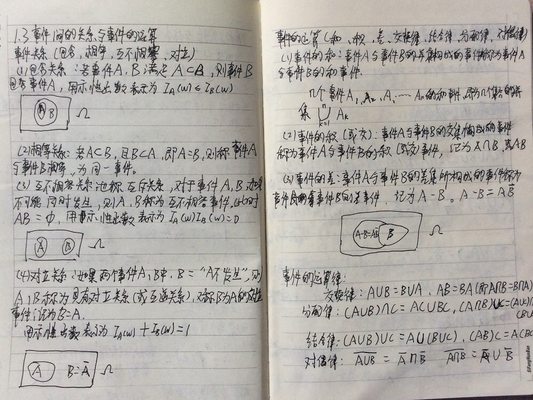 1.3 事件间的关系与事件的运算
事件关系 (包含, 相等, 互不相容, 对立)
(1) 包含关系: 若事件A, B 满足 A⊂B, 则事件B
包含事件A, 用示性函数表示为 I_A(w) ≤ I_B(w)
A B Ω
(2) 相等关系: 若A⊂B, 且B⊂A, 即A=B, 则称事件A
与事件B相等, 为同一事件。
(3) 互不相容关系: 也称互斥关系, 对于事件A, B
不可能同时发生, 则A, B称为互不相容事件, 此时
AB = Φ, 用示性函数表示为 I_A(w) I_B(w) = 0
A B Ω
(4) 对立关系: 如果两个事件A, B中, B = "A不发生", 则
A, B称为具有对立关系 (或互逆关系), 又称B为A的
事件记为B=A.
用示性函数表示为 I_A(w) + I_B(w) = 1
A B=A̅ Ω
事件的运算 (和, 积, 差, 交换律, 结合律, 分配律, 对偶律)
(1) 事件的和: 事件A与事件B的并集构成的事件称为事件A
与事件B的和事件.
几个事件A₁, A₂, A, … Aₙ的和事件, 即为几个
集 ⋃ Aₖ
(2) 事件的积 (或交): 事件A与事件B的交集构成的事件
称为事件A与事件B的积 (或交) 事件, 记为 A∩B, 或AB
(3) 事件的差: 事件A与事件B的差集所构成的事件称为
事件B的差事件, 记为 A-B. A-B = AB̅
A-B=AB̅ B Ω
事件的运算律:
交换律: A∪B = B∪A, AB = BA (即A∩B=B∩A)
分配律: (A∪B)∩C = AC∪BC, (A∩B)∪C = (A∪C)∩
(B∪
结合律: (A∪B)∪C = A∪(B∪C), (AB)C = A(BC
对偶律: A̅∪̅B̅ = A̅∩B̅ A̅∩̅B̅ = A̅∪B̅